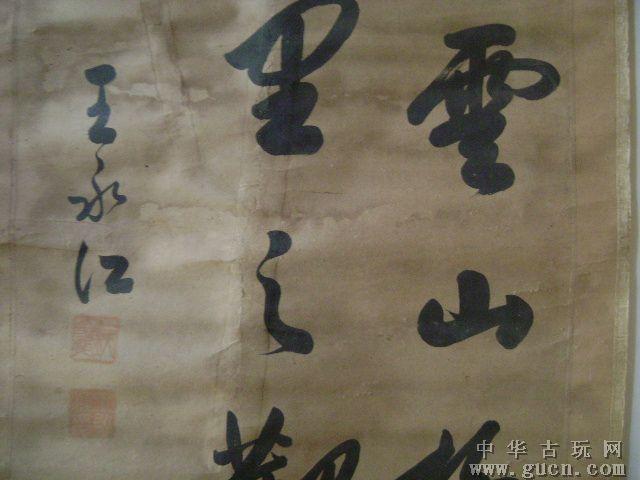 雲山
里之觀
王永江
中华古玩网
www.gucn.com